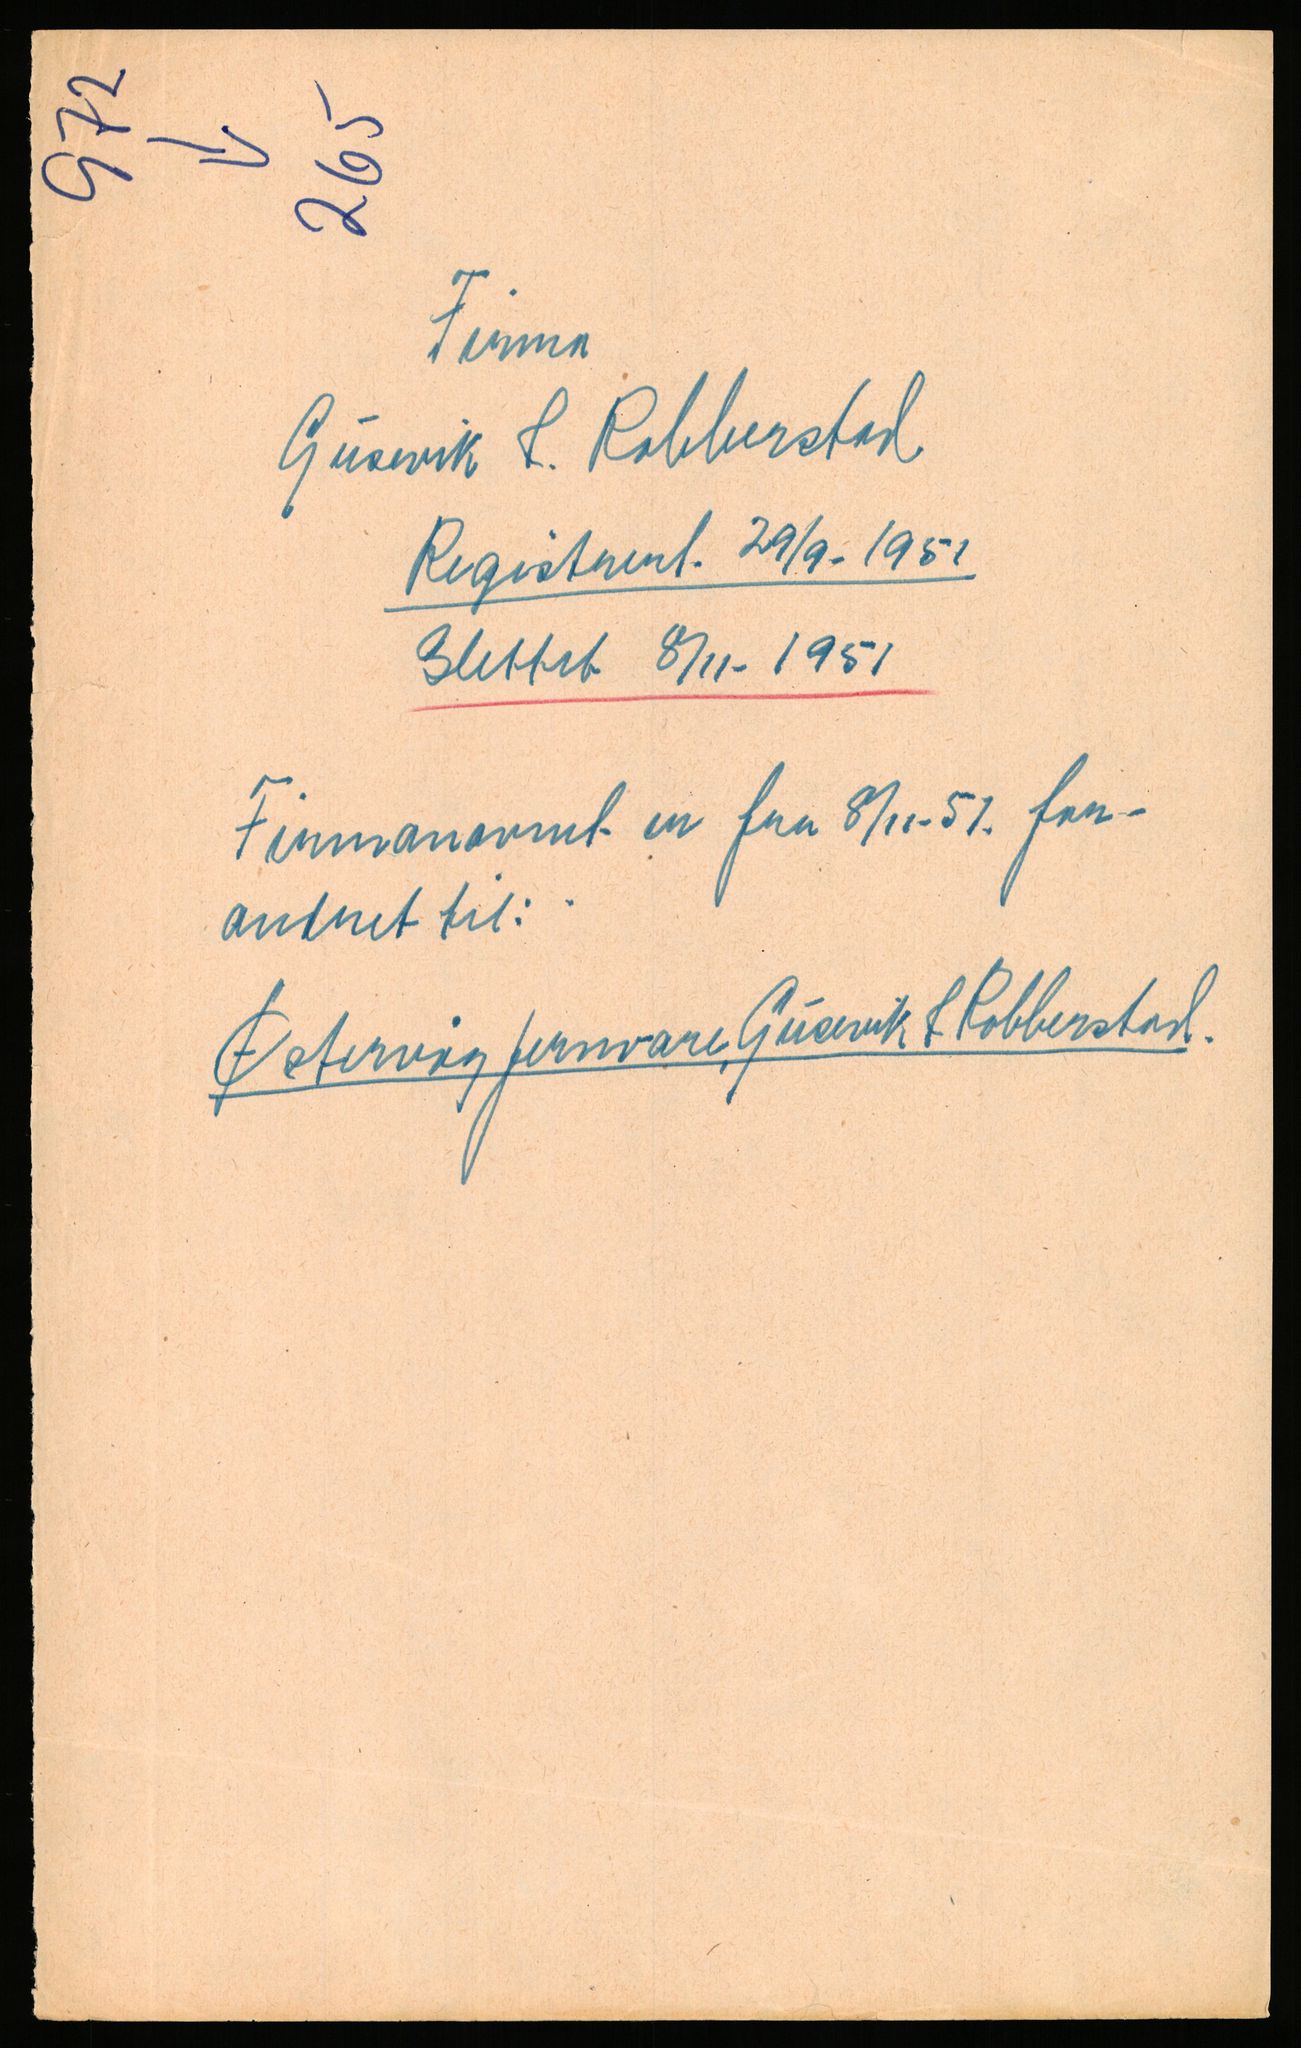 972
↓
265
Firma
Gusevik & Robberstad
Registrert. 29/9-1951
Slettet 8/11-1951
Firmanavnet er fra 8/11-51. for-
andret til:
Østervåg jernvare, Gusevik & Robberstad.